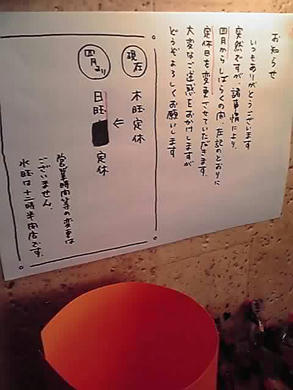 お知らせ
いつもありがとうございます
突然ですが諸事情により、
四月からしばらくの間、左記のとおりに
定休日を変更させていただきます。
大変なご迷惑をおかけしますが
どうぞよろしくお願いします
現在
木曜定休
↓
四月より
日曜 定休
営業時間等の変更は
ございません。
水曜は十二時半開店です。